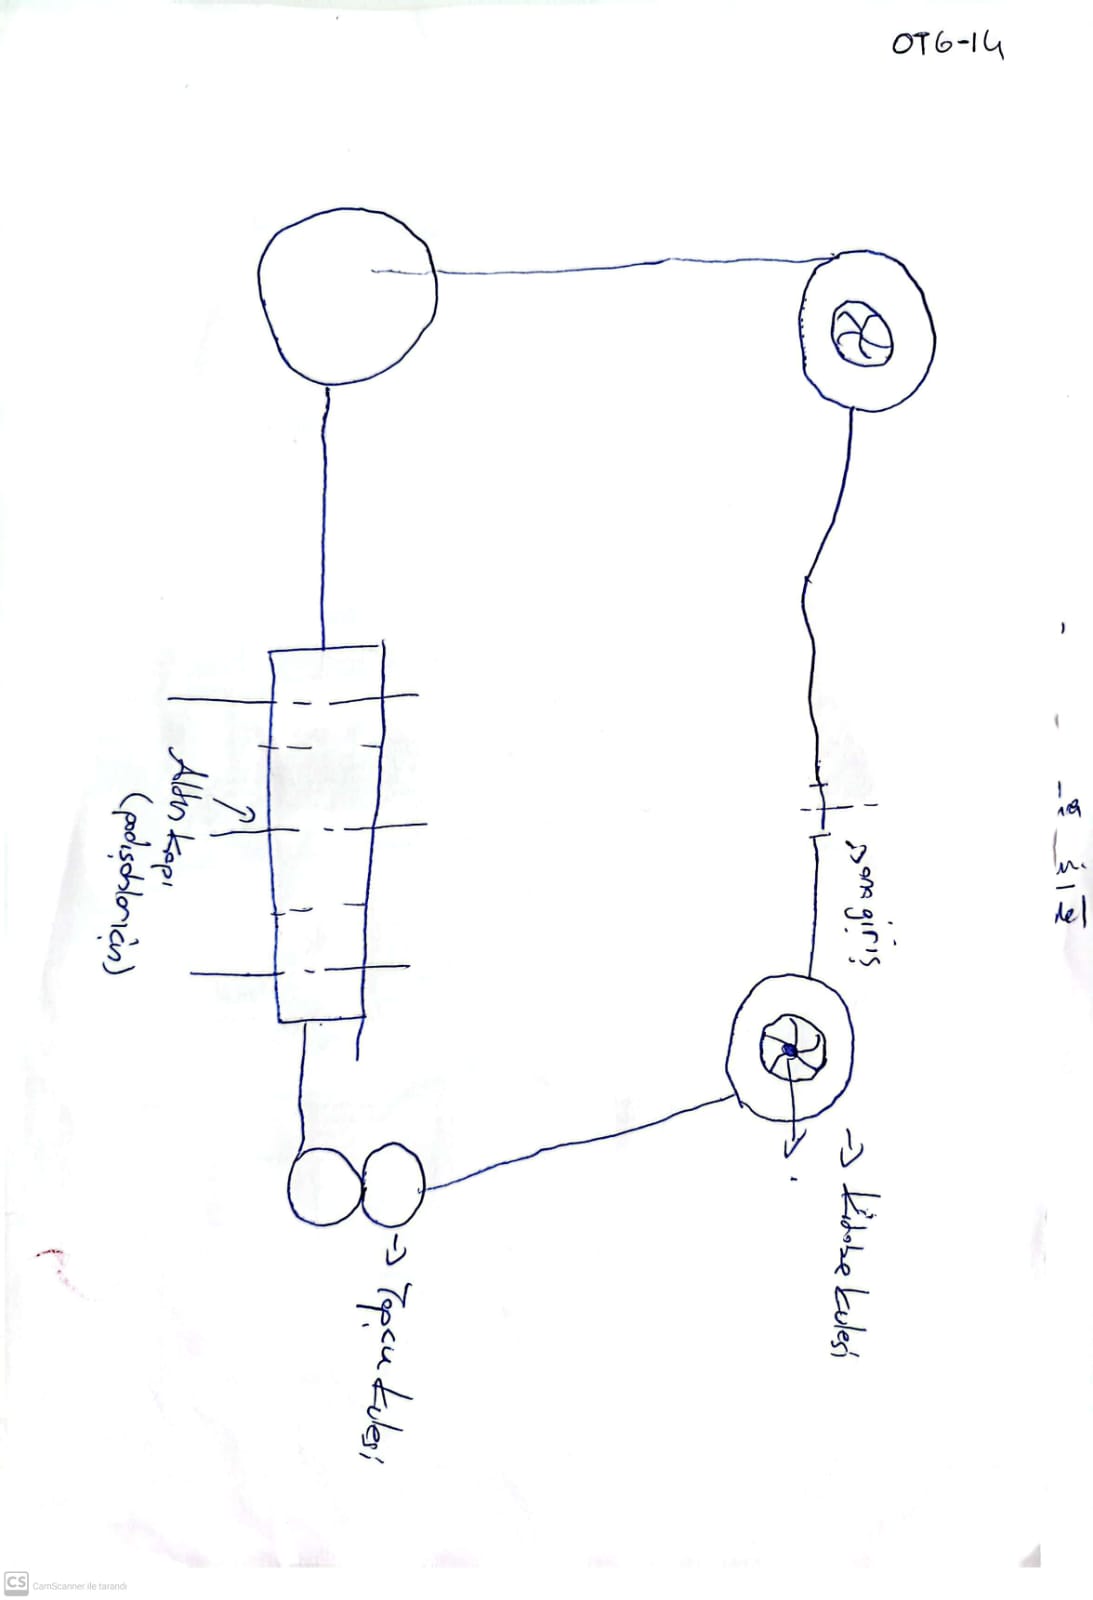 OTG-14
→ ana giriş
→ Kitabe kulesi
→ Topçu kulesi
Altın kapı
(padişahlar için)
CS CamScanner ile tarandı